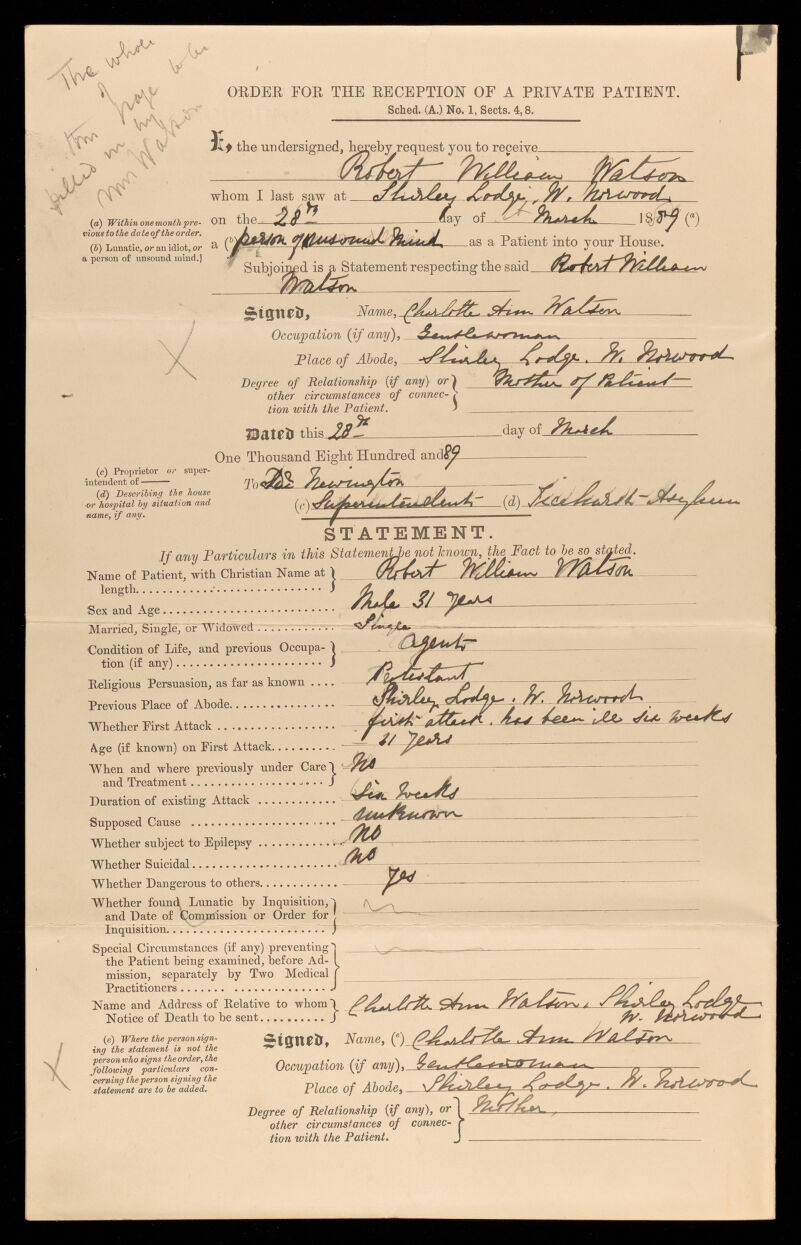 The whole
of
this page to be
filled in by
Mrs Watson
ORDER FOR THE RECEPTION OF A PRIVATE PATIENT.
Sched. (A.) No. 1, Sects. 4, 8.
I, the undersigned, hereby request you to receive
Robert William Watson
whom I last saw at Shirley Lodge, W. Norwood
on the 28th day of March 1889 (a)
(a) Within one month previous to the date of the order.
a (b) person of unsound mind as a Patient into your House.
(b) Lunatic, or an idiot, or a person of unsound mind.]
Subjoined is a Statement respecting the said Robert William
Watson
Signed, Name, Charlotte Ann Watson
Occupation (if any), Gentlewoman
Place of Abode, Shirley Lodge. W. Norwood
Degree of Relationship (if any) or other circumstances of connection with the Patient. Mother of Patient
Dated this 28th day of March
One Thousand Eight Hundred and 89
(c) Proprietor or superintendent of ——
To Dr Newington
(d) Describing the house or hospital by situation and name, if any.
(c) Superintendent (d) Ticehurst Asylum
STATEMENT.
If any Particulars in this Statement be not known, the Fact to be so stated.
Name of Patient, with Christian Name at length Robert William Watson
Sex and Age Male 31 years
Married, Single, or Widowed Single
Condition of Life, and previous Occupation (if any) Agent
Religious Persuasion, as far as known Protestant
Previous Place of Abode Shirley Lodge. W. Norwood
Whether First Attack first attack. has been ill six weeks
Age (if known) on First Attack 31 years
When and where previously under Care and Treatment No
Duration of existing Attack Six Weeks
Supposed Cause unknown
Whether subject to Epilepsy No
Whether Suicidal No
Whether Dangerous to others Yes
Whether found Lunatic by Inquisition, and Date of Commission or Order for Inquisition
Special Circumstances (if any) preventing the Patient being examined, before Admission, separately by Two Medical Practitioners
Name and Address of Relative to whom Notice of Death to be sent Charlotte Ann Watson, Shirley Lodge
W. Norwood
(e) Where the person signing the statement is not the person who signs the order, the following particulars concerning the person signing the statement are to be added.
Signed, Name, (e) Charlotte Ann Watson
Occupation (if any), Gentlewoman
Place of Abode, Shirley Lodge. W. Norwood
Degree of Relationship (if any), or other circumstances of connection with the Patient. Mother,